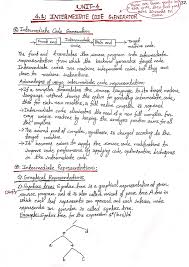 UNIT-4
4.1: INTERMEDIATE CODE GENERATOR
Intermediate Code Generation:
Front end Intermediate code Back end Target code
The front end translates the source program into intermediate
representation from which the backend generates target code.
Intermediate codes are machine independent codes, but they are
close to machine instructions.
Advantages of using intermediate code representation:
If a compiler translates the source language to its target machine
language without having the option for generating intermediate
code, then for each new machine, a full native compiler is required.
Intermediate code eliminates the need of a new full compiler for
every unique machine by keeping the analysis portion same for all
the compilers.
The second part of compiler, synthesis, is changed according to the
target machine.
It becomes easier to apply the source code modification to
improve code performance by applying code optimization techniques
on the intermediate code.
Intermediate Representations:
Graphical Representations:
Syntax tree: Syntax tree is a graphical representation of given
source program and it is also called variant of parse tree. A tree in
which leaf represents an operand and each interior node
represents an operator is called syntax tree.
Example: Syntax tree for the expression